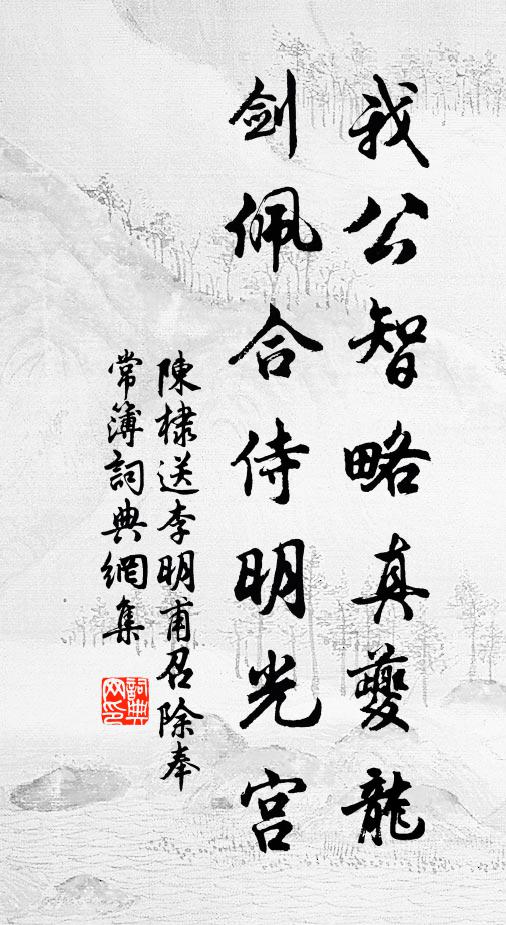 我公智略真夔龍
剑佩合侍明光宫
陳棣送李明甫召除奉
常簿詞典網集
詞典網印